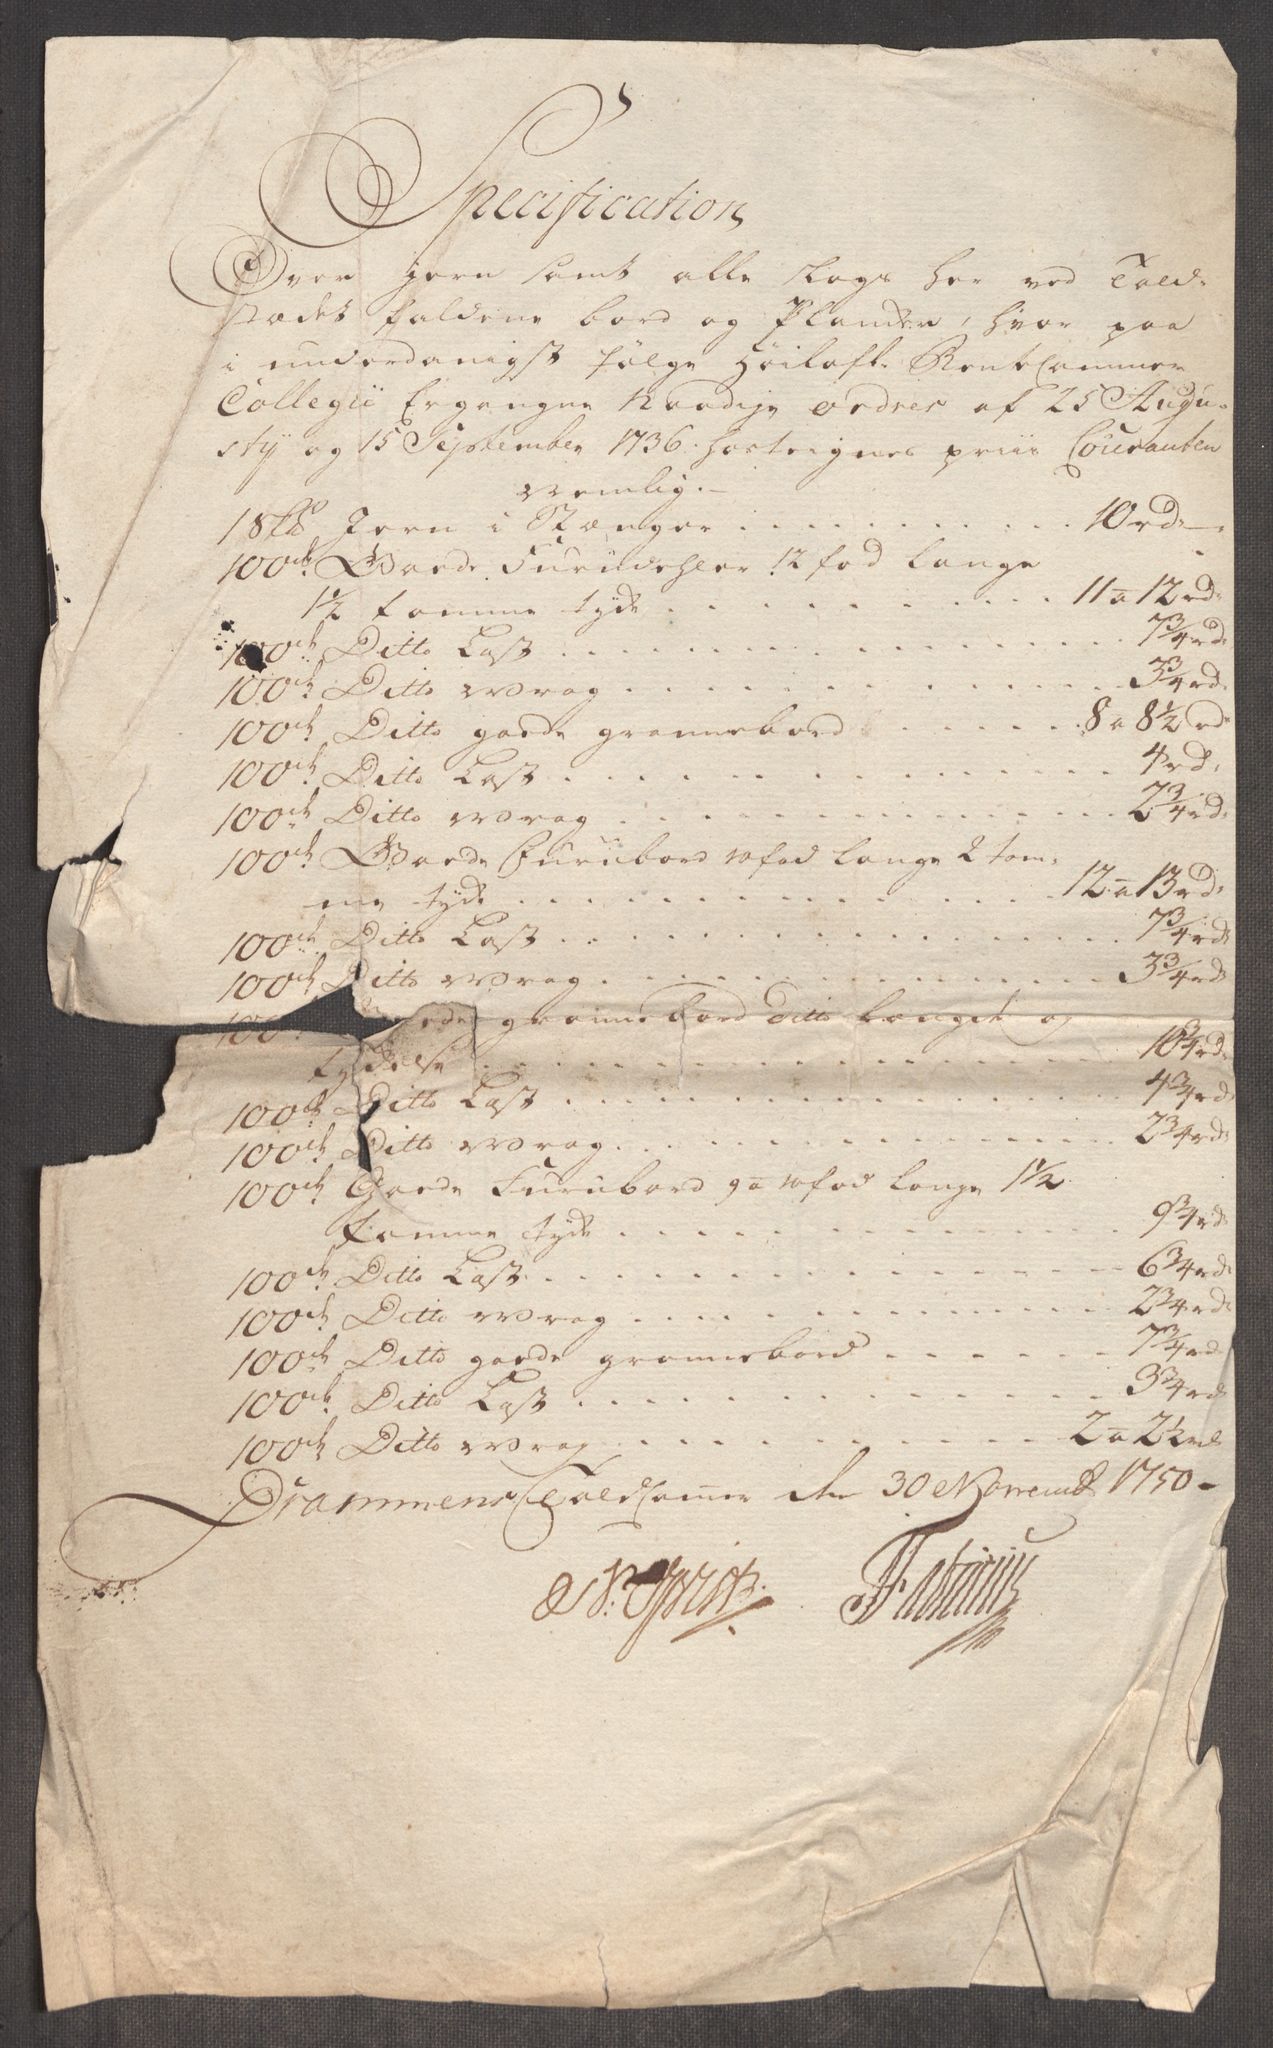 Specification
Over Jern samt alle slags her ved Told-
stædet faldene bord og Plancker, hvor paa
i underdanigst følge Høiloft. RentCammer
Collegii Ergangne Naadige ordres af 25 Augu-
stij og 15 September 1736. hostegnes priis Couranten
Nemlig.
1 Sk℔ Jern i Stænger 10 rd.
100ck. Goede Furudehler 12 fod lange
1½ tomme tyck 11 a 12 rd.
100ck Ditto Last 7¾ rd.
100ck Ditto Wrag 3¾ rd.
100ck Ditto goede grannebord 8 a 8½ rd.
100ck Ditto Last 4 rd.
100ck Ditto Wrag 2¾ rd.
100ck Goede Furubord 10 fod lange 2 tom-
me tyck 12 a 13 rd.
100ck Ditto Last 7¾ rd.
100ck Ditto Wrag 3¾ rd.
100 goede grannebord Ditto længde og
tyckelse 10¾ rd.
100ck Ditto Last 4¾ rd.
100ck Ditto Wrag 2¾ rd.
100ck Goede Furubord 9 a 10 fod lange 1½
tomme tyck 9¾ rd.
100ck Ditto Last 6¾ rd.
100ck Ditto Wrag 2¾ rd.
100ck Ditto goede grannebord 7¾ rd.
100ck Ditto Last 3¾ rd.
100ck Ditto Wrag 2 a 2½ rd.
Drammens Toldcamer den 30 Novemb 1750.